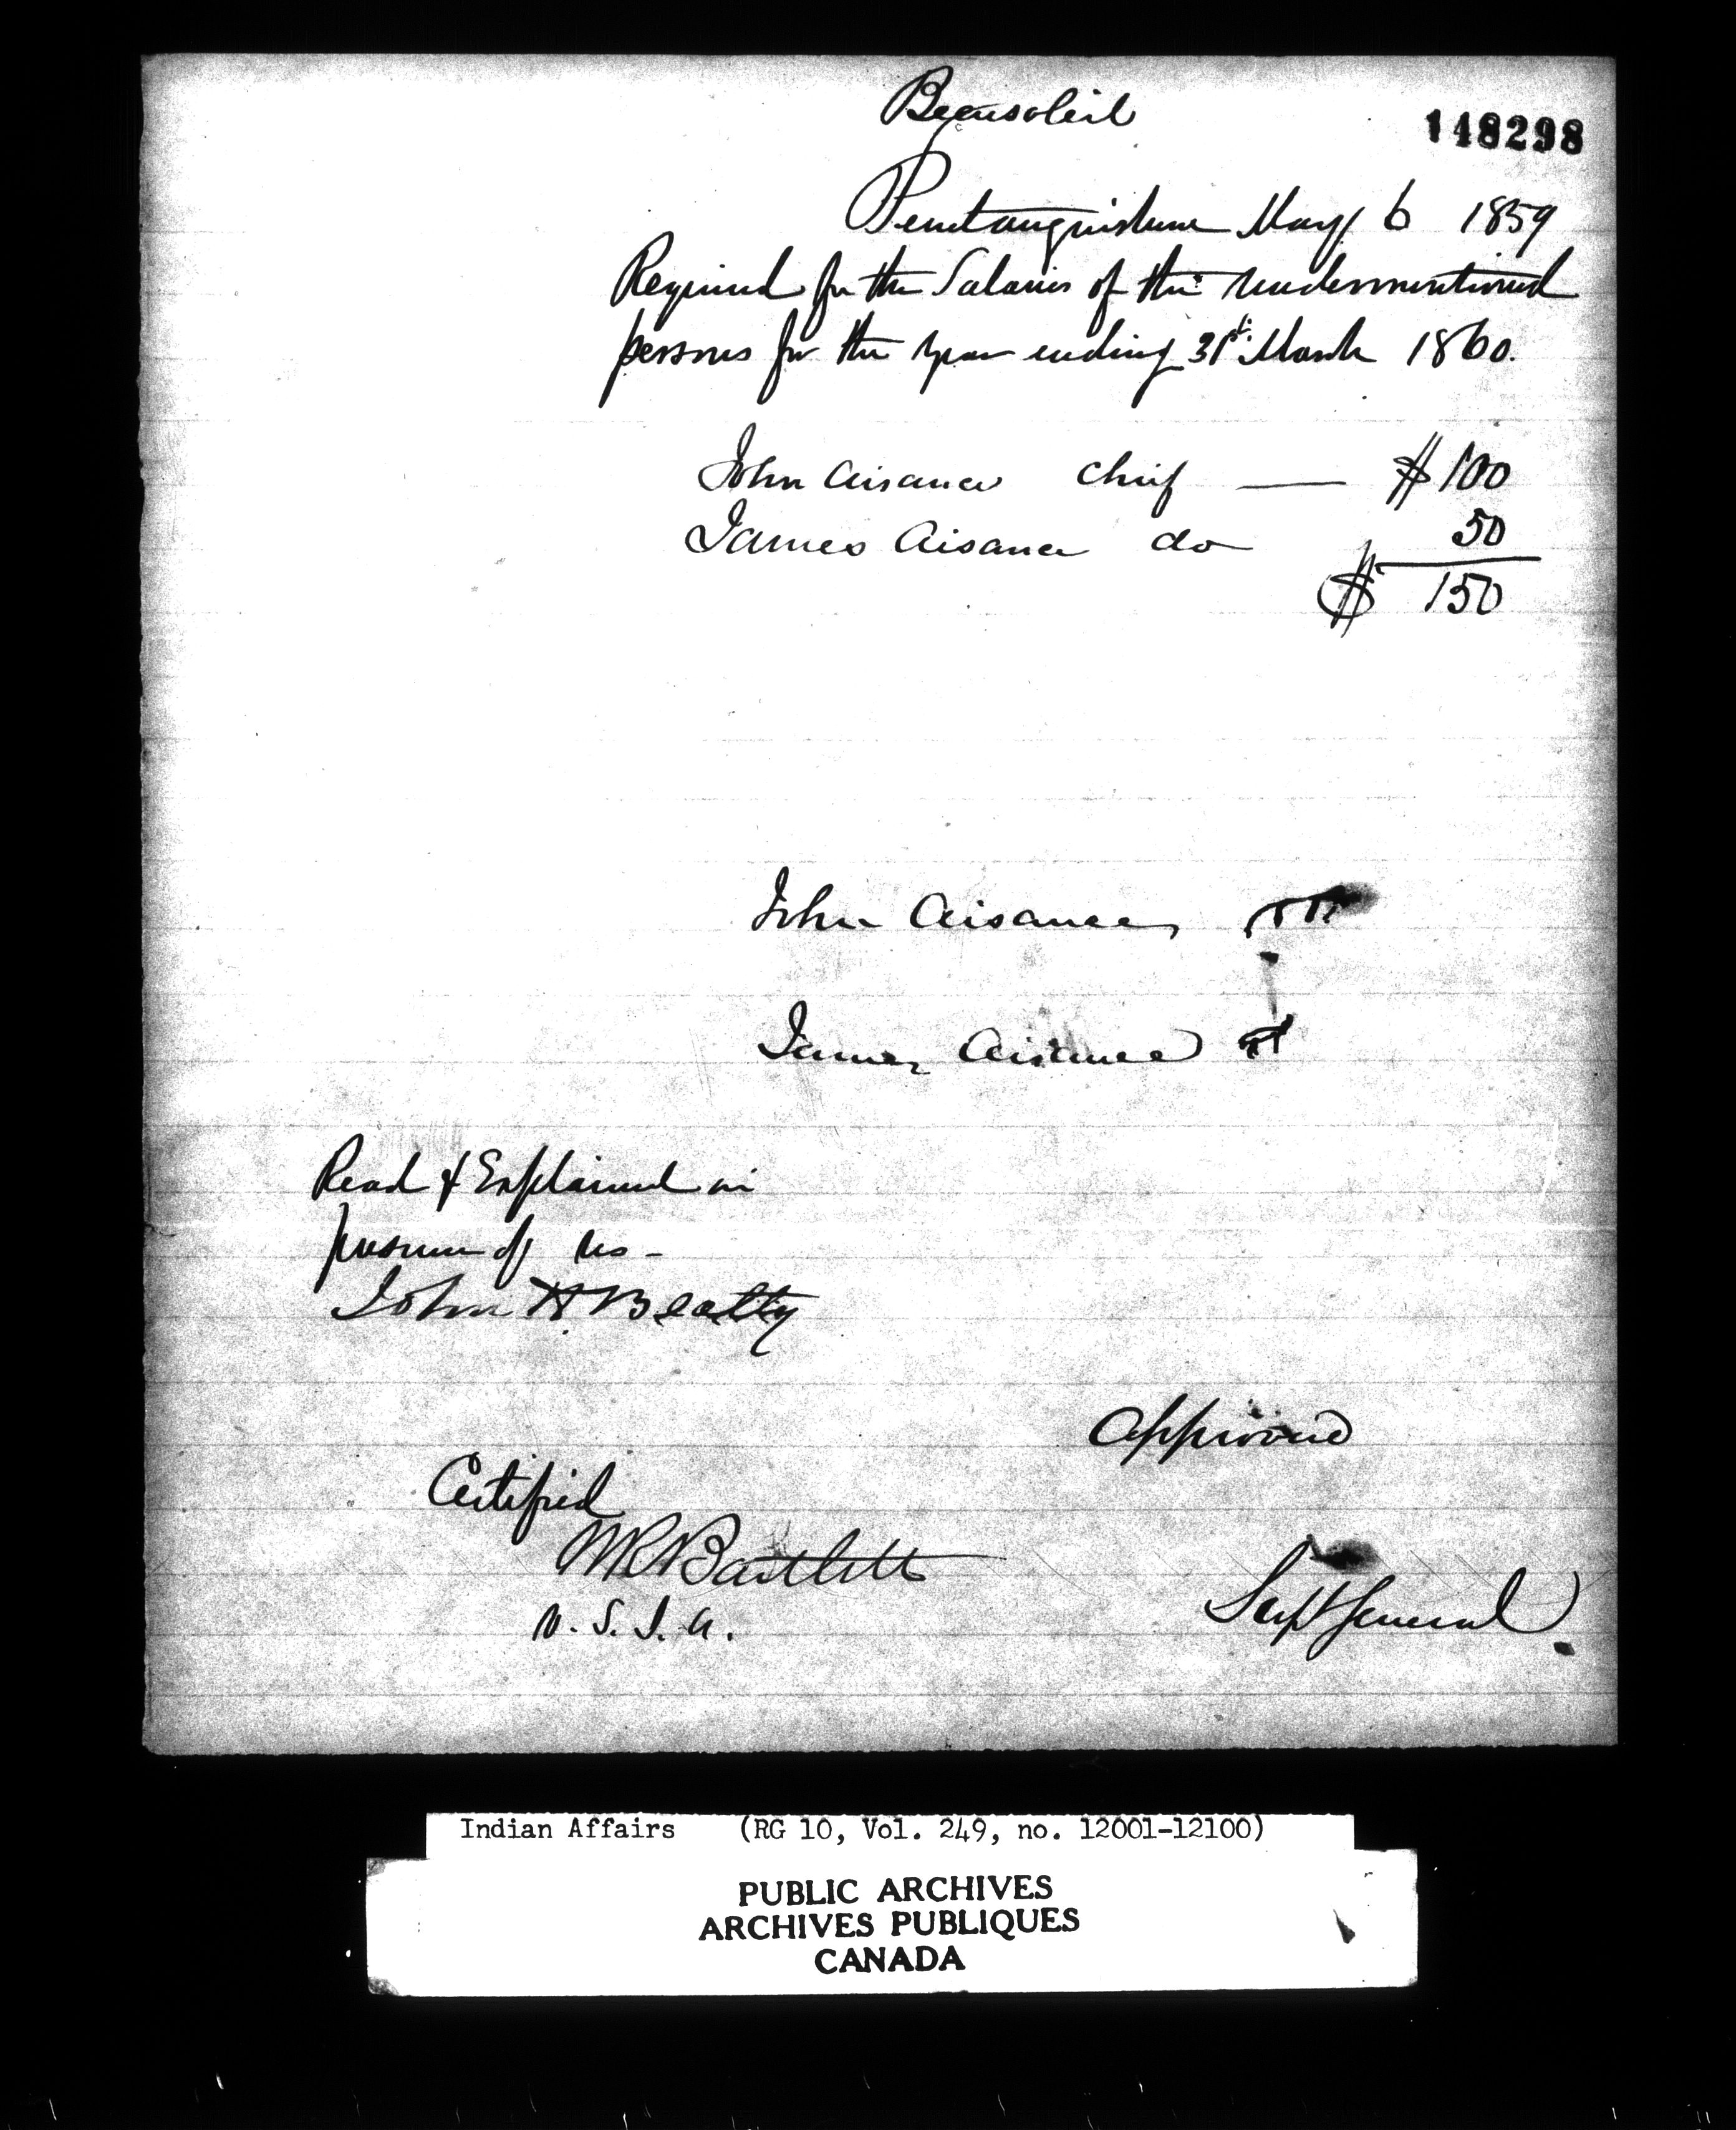 Beausoleil
148298
Penetanguishene May 6 1859
Required for the Salaries of the undermentioned
persons for the year ending 31st. March 1860.
John Aisance chief — $100
James Aisance do 50
$ 150
John Aisance
James Aisance
Read & Explained in
presence of us -
John H Beatty
Approved
Certified
WRBartlett
V. S. I. A.
Supt General
Indian Affairs (RG 10, Vol. 249, no. 12001-12100)
PUBLIC ARCHIVES
ARCHIVES PUBLIQUES
CANADA